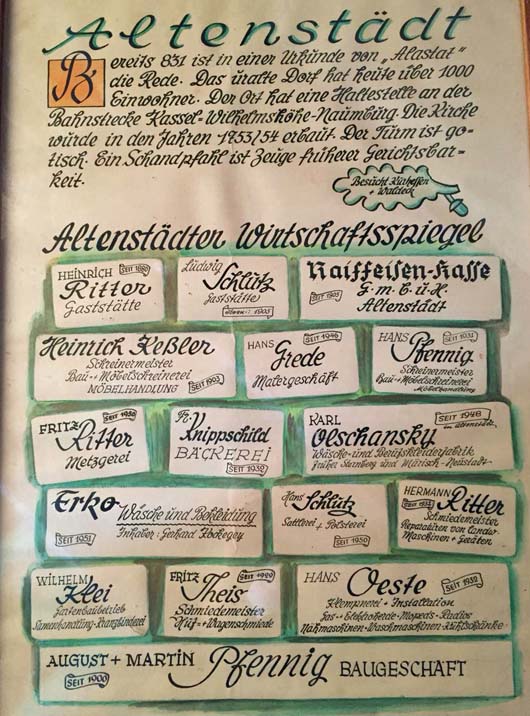 Altenstädt
Bereits 831 ist in einer Urkunde von „Alastat"
die Rede. Das uralte Dorf hat heute über 1000
Einwohner. Der Ort hat eine Haltestelle an der
Bahnstrecke Kassel-Wilhelmshöhe-Naumburg. Die Kirche
wurde in den Jahren 1753/54 erbaut. Der Turm ist go-
tisch. Ein Schandpfahl ist Zeuge früherer Gerichtsbar-
keit.
Besucht Kurhessen
+ Waldeck
Altenstädter Wirtschaftsspiegel
HEINRICH SEIT
Ritter
Gaststätte
Ludwig
Schlütz
Gaststätte
1905
Raiffeisen-Kasse
G.m.b.u.H.
SEIT
Altenstädt
Heinrich Keßler
Schreinermeister
Bau- + Möbelschreinerei
MÖBELHANDLUNG SEIT
HANS SEIT 1946
Grede
Malergeschäft
HANS SEIT 1931
Pfennig
Schreinermeister
Bau- + Möbelschreinerei
Möbelhandlung
FRITZ SEIT
Ritter
Metzgerei
Fr. Knippschild
BÄCKEREI
SEIT 1932
KARL SEIT 1948
Olschansky
Wäsche- und Berufskleiderfabrik
früher Sternberg und Mährisch-Neustadt
Erko Wäsche und Bekleidung
SEIT 1951 Inhaber: Gerhard
Hans
Schlütz
Sattlerei + Polsterei
SEIT 1950
HERMANN
SEIT Ritter
Schmiedemeister
Reparaturen von Landw.
Maschinen + Geräten
WILHELM
Klei
Gartenbaubetrieb
Samenhandlung - Kranzbinderei
FRITZ SEIT
Theis
Schmiedemeister
Huf- + Wagenschmiede
HANS SEIT 1932
Oeste
Klempnerei + Installation
Gas- + Elektroherde - Mopeds - Radios
Nähmaschinen - Waschmaschinen - Kühlschränke
AUGUST + MARTIN Pfennig BAUGESCHÄFT
SEIT 1900